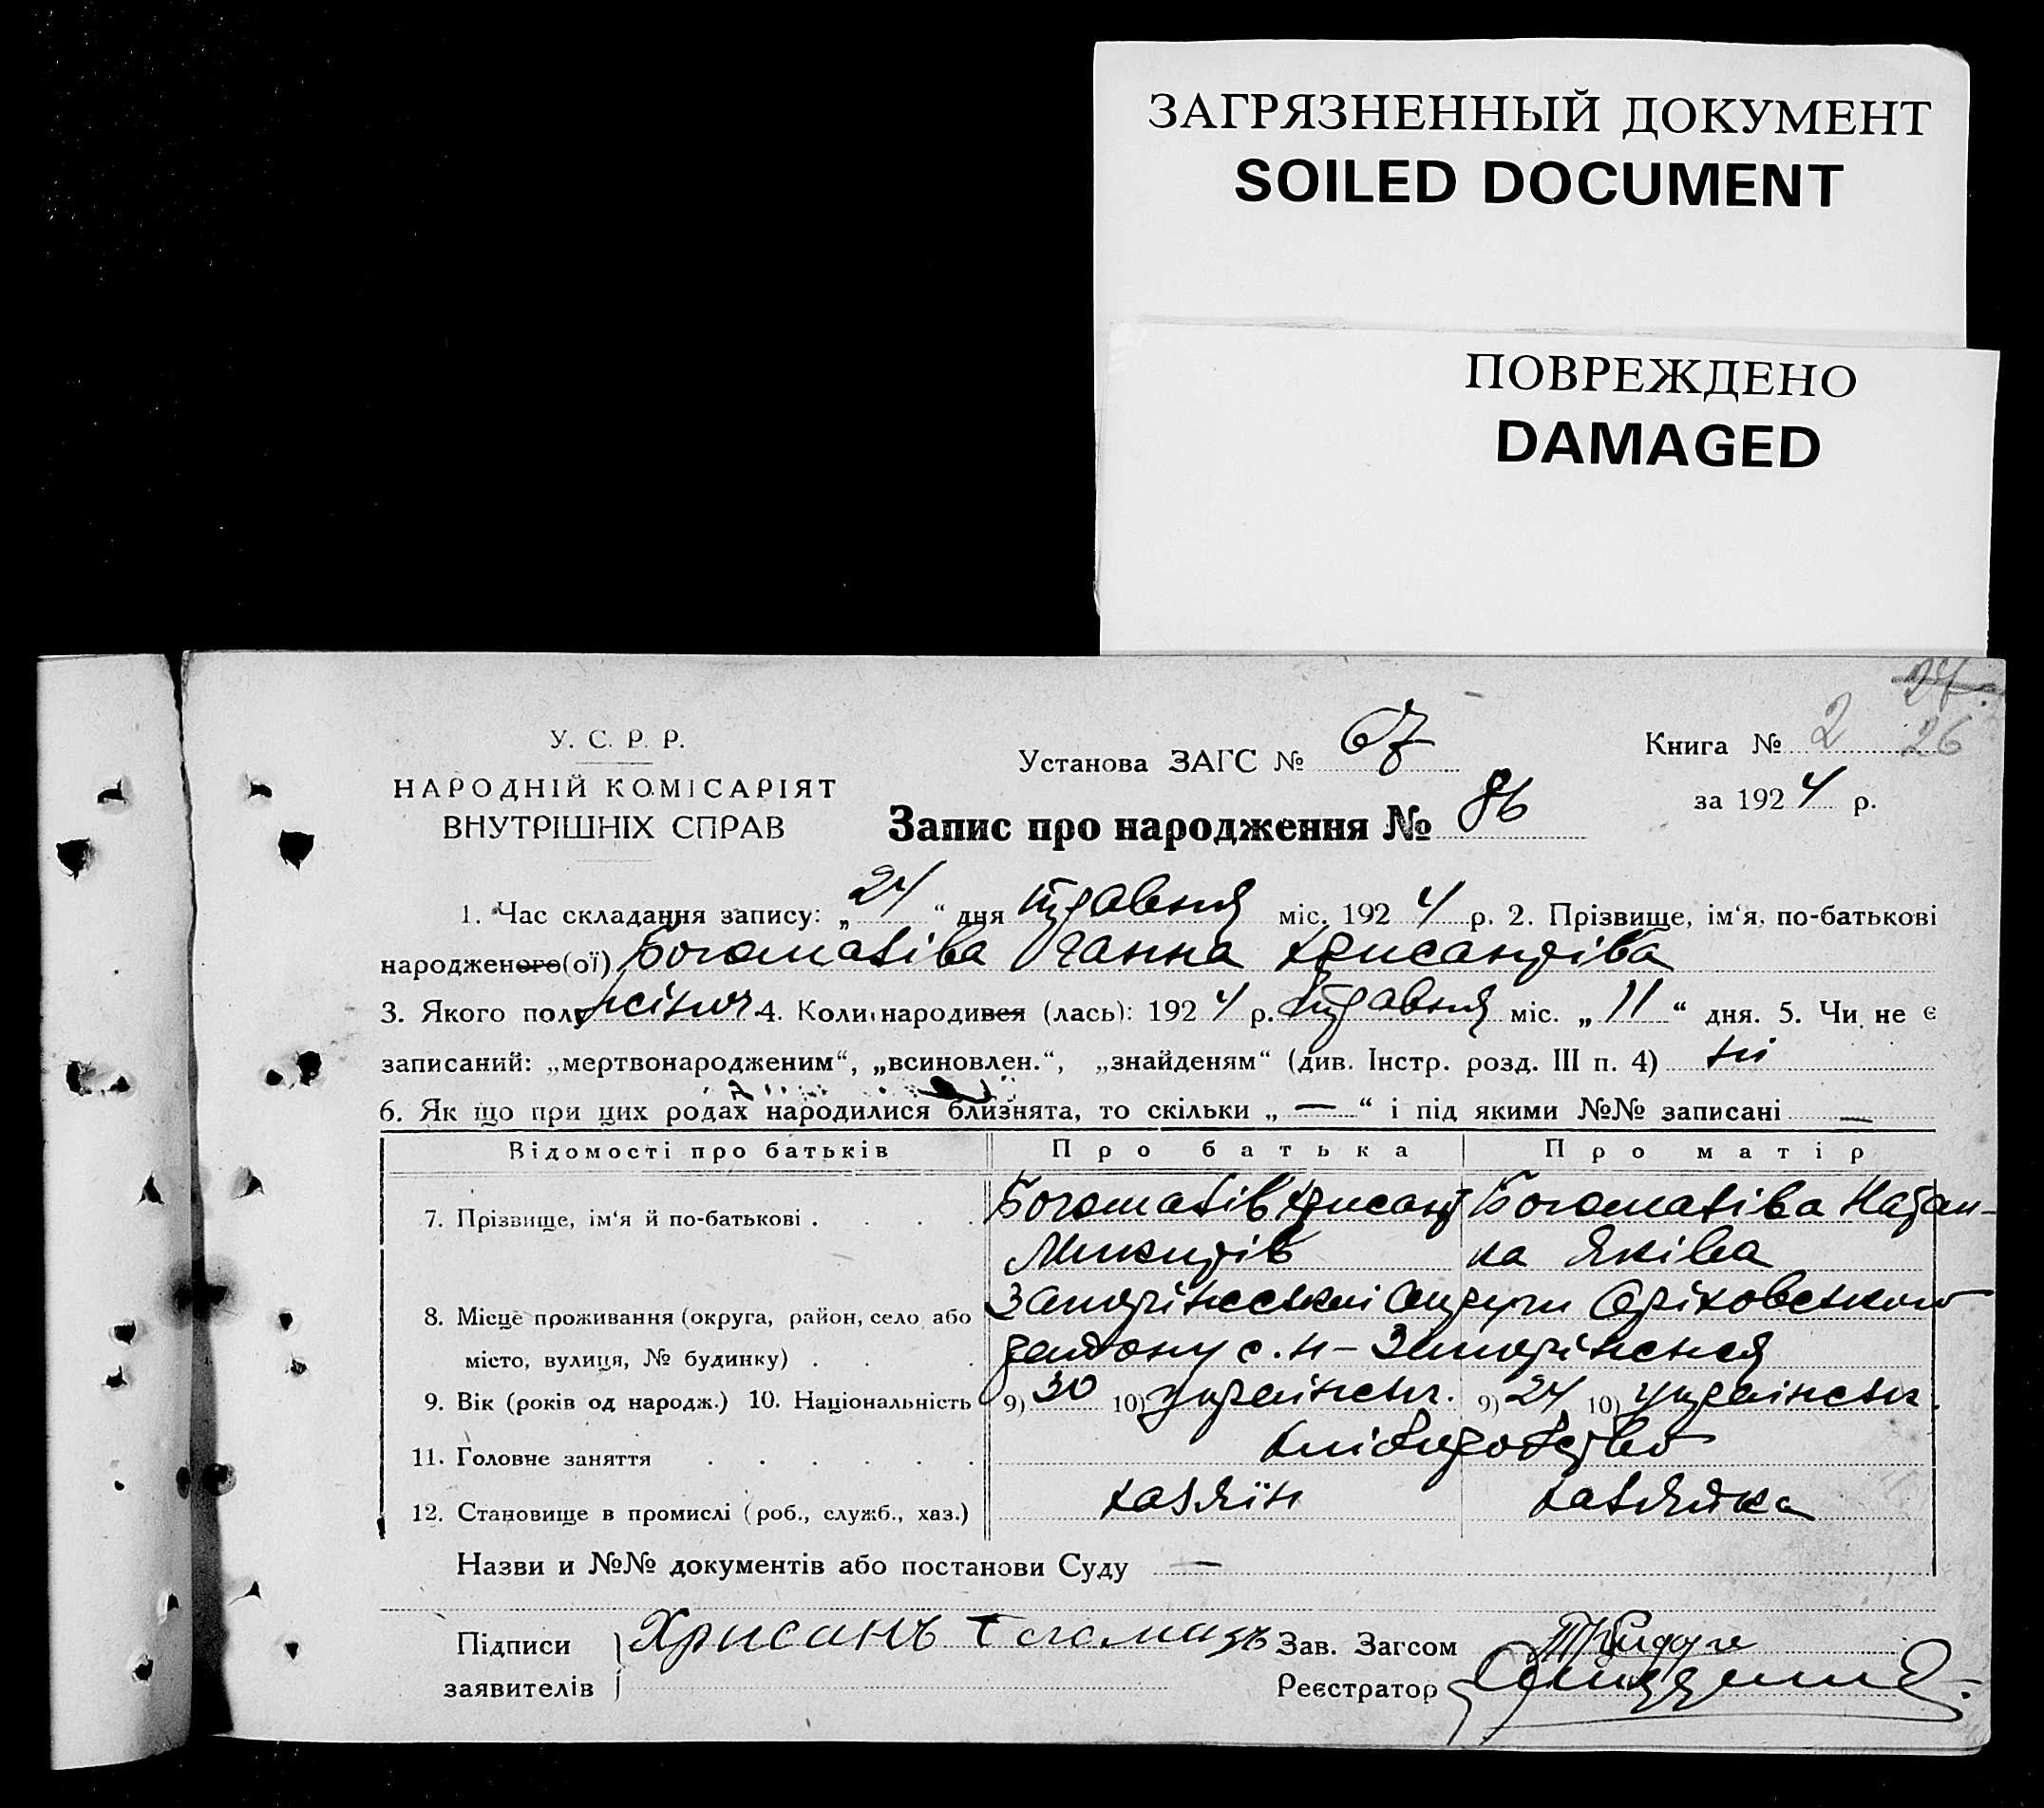 ЗАГРЯЗНЕННЫЙ ДОКУМЕНТ
SOILED DOCUMENT
ПОВРЕЖДЕНО
DAMAGED
24.
26
У. С. Р. Р.
НАРОДНІЙ КОМІСАРІЯТ
ВНУТРІШНІХ СПРАВ
Установа ЗАГС № 67
Книга № 2
за 1924 р.
Запис про народження № 86
1. Час складання запису: „24“ дня травня міс. 1924 р. 2. Прізвище, ім‘я, по-батькові
народженого(ої) Богомазіва Ганна Хрисандіва
3. Якого полу жіноч. 4. Коли народився (лась): 1924 р. травня міс. „11“ дня. 5. Чи не є
записаний: „мертвонародженим“, „всиновлен.“, „знайденям“ (див. Інстр. розд. III п. 4) ні
6. Як що при цих родах народилися близнята, то скільки „—“ і під якими №№ записані —
Відомості про батьків Про батька Про матір
7. Прізвище, ім‘я й по-батькові . . . . Богомазів Хрисанд Богомазіва Натал-
Микитів ка Яківа
8. Місце проживання (округа, район, село або Запоріжської Округи Оріховського
місто, вулиця, № будинку) . . . району с. н-Запоріжжя
9. Вік (років од народж.) 10. Національність 9) 30 10) українськ. 9) 24 10) українськ.
11. Головне заняття . . . . . . хліборобство
12. Становище в промислі (роб., служб., хаз.) хазяїн хазяйка
Назви и №№ документів або постанови Суду —
Підписи Хрисанъ Богомазъ Зав. Загсом
заявителів Реєстратор